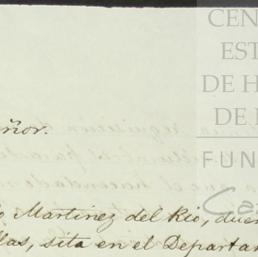 CEN
EST
DE H
DE
FUN
Ca
ñor.
o Martinez del Rio, due
llas, sita en el Departa